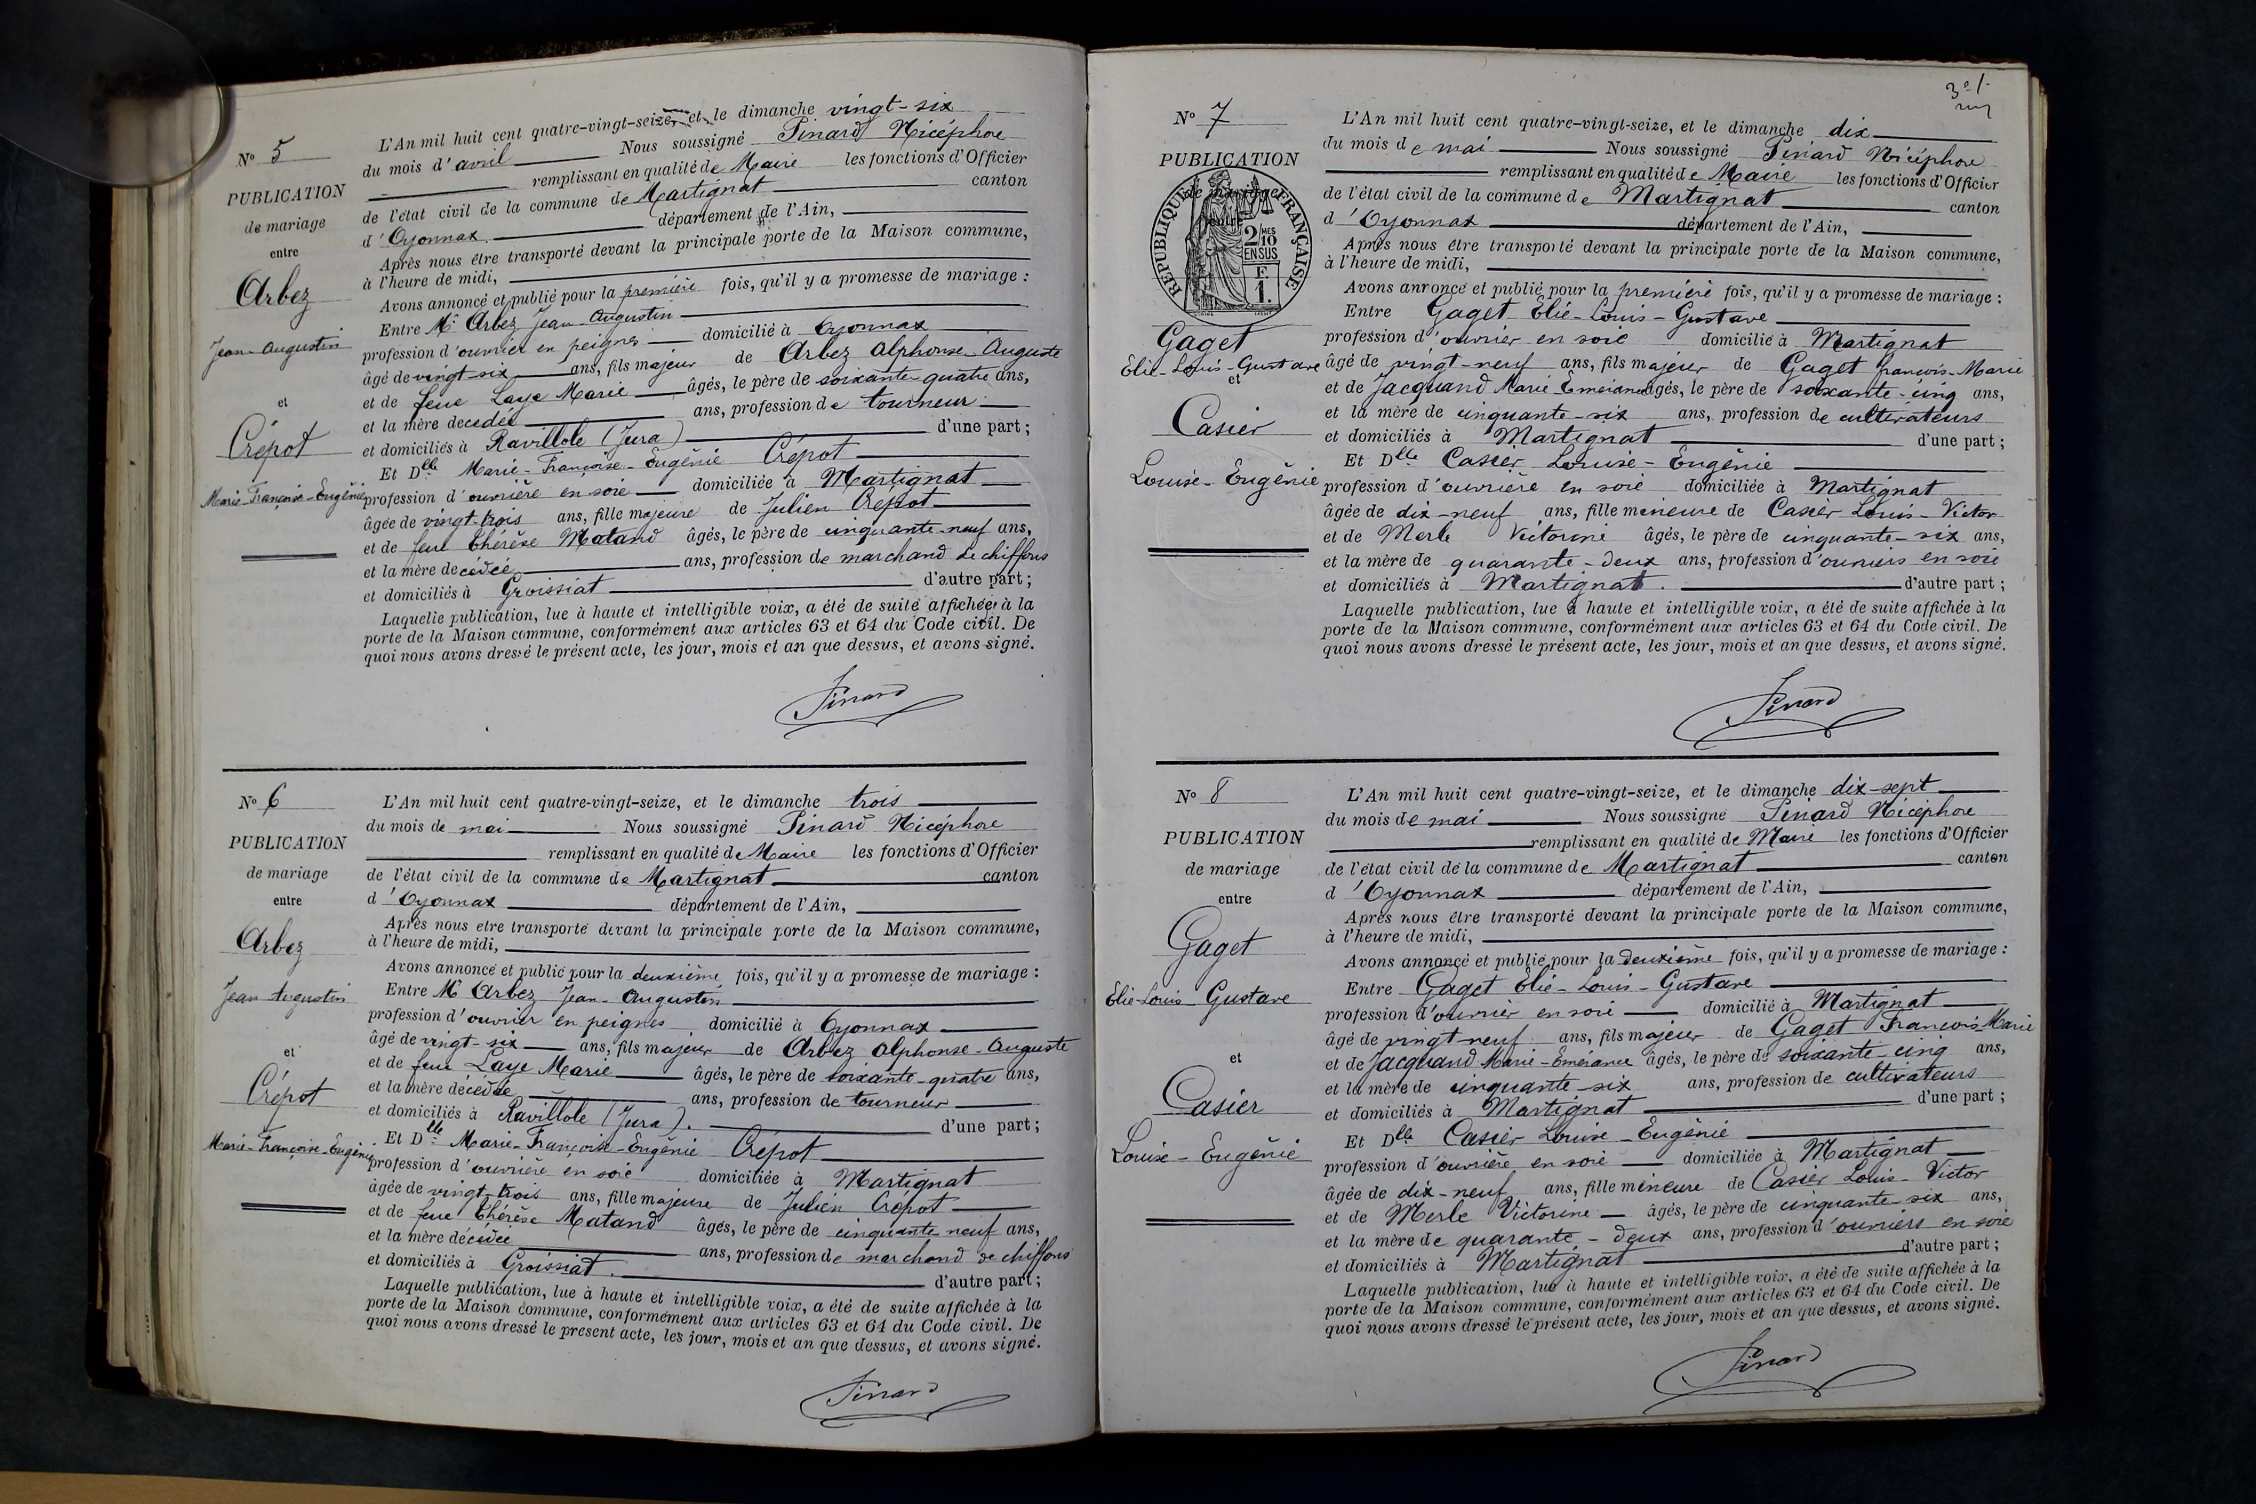 N° 5
PUBLICATION
de mariage
entre
Arbez
Jean-Augustin
et
Crépot
Marie-Françoise-Eugénie
L'An mil huit cent quatre-vingt-seize, et le dimanche vingt-six
du mois d'avril Nous soussigné Pinard Nicéphore
remplissant en qualité de Maire les fonctions d'Officier
de l'état civil de la commune de Martignat canton
d'Oyonnax département de l'Ain,
Après nous être transporté devant la principale porte de la Maison commune,
à l'heure de midi,
Avons annoncé et publié pour la première fois, qu'il y a promesse de mariage :
Entre Mr Arbez Jean-Augustin
profession d'ouvrier en peignes domicilié à Oyonnax
âgé de vingt-six ans, fils majeur de Arbez Alphonse-Auguste
et de feue Laye Marie âgés, le père de soixante-quatre ans,
et la mère décédée ans, profession de tourneur
et domiciliés à Ravillole (Jura) d'une part ;
Et Dlle Marie-Françoise-Eugénie Crépot
profession d'ouvrière en soie domiciliée à Martignat
âgée de vingt-trois ans, fille majeure de Julien Crépot
et de feue Thérèse Matand âgés, le père de cinquante-neuf ans,
et la mère décédée ans, profession de marchand de chiffons
et domiciliés à Groissiat d'autre part ;
Laquelle publication, lue à haute et intelligible voix, a été de suite affichée à la
porte de la Maison commune, conformément aux articles 63 et 64 du Code civil. De
quoi nous avons dressé le présent acte, les jour, mois et an que dessus, et avons signé.
Pinard
N° 6
PUBLICATION
de mariage
entre
Arbez
Jean-Augustin
et
Crépot
Marie-Françoise-Eugénie
L'An mil huit cent quatre-vingt-seize, et le dimanche trois
du mois de mai Nous soussigné Pinard Nicéphore
remplissant en qualité de Maire les fonctions d'Officier
de l'état civil de la commune de Martignat canton
d'Oyonnax département de l'Ain,
Après nous etre transporté devant la principale porte de la Maison commune,
à l'heure de midi,
Avons annoncé et publié pour la deuxième fois, qu'il y a promesse de mariage :
Entre Mr Arbez Jean-Augustin
profession d'ouvrier en peignes domicilié à Oyonnax
âgé de vingt-six ans, fils majeur de Arbez Alphonse-Auguste
et de feue Laye Marie âgés, le père de soixante-quatre ans,
et la mère décédée ans, profession de tourneur
et domiciliés à Ravillole (Jura). d'une part ;
Et Dlle Marie-Françoise-Eugénie Crépot
profession d'ouvrière en soie domiciliée à Martignat
âgée de vingt-trois ans, fille majeure de Julien Crépot
et de feue Thérèse Matand âgés, le père de cinquante neuf ans,
et la mère décédée ans, profession de marchand de chiffons
et domiciliés à Groissiat. d'autre part ;
Laquelle publication, lue à haute et intelligible voix, a été de suite affichée à la
porte de la Maison commune, conformément aux articles 63 et 64 du Code civil. De
quoi nous avons dressé le présent acte, les jour, mois et an que dessus, et avons signé.
Pinard
N° 7
PUBLICATION
de mariage
RÉPUBLIQUE FRANÇAISE
2/10 MES
EN SUS
F.
1.
Gaget
Elie-Louis-Gustave
et
Casier
Louise-Eugénie
L'An mil huit cent quatre-vingt-seize, et le dimanche dix
du mois de mai Nous soussigné Pinard Nicéphore
remplissant en qualité de Maire les fonctions d'Officier
de l'état civil de la commune de Martignat canton
d'Oyonnax département de l'Ain,
Après nous être transporté devant la principale porte de la Maison commune,
à l'heure de midi,
Avons annoncé et publié pour la première fois, qu'il y a promesse de mariage :
Entre Gaget Elie-Louis-Gustave
profession d'ouvrier en soie domicilié à Martignat
âgé de vingt-neuf ans, fils majeur de Gaget François-Marie
et de Jacquand Marie Emérance âgés, le père de soixante-cinq ans,
et la mère de cinquante-six ans, profession de cultivateurs
et domiciliés à Martignat d'une part ;
Et Dlle Casier Louise-Eugénie
profession d'ouvrière en soie domiciliée à Martignat
âgée de dix-neuf ans, fille mineure de Casier Louis-Victor
et de Merle Victorine âgés, le père de cinquante-six ans,
et la mère de quarante-deux ans, profession d'ouvriers en soie
et domiciliés à Martignat. d'autre part ;
Laquelle publication, lue à haute et intelligible voix, a été de suite affichée à la
porte de la Maison commune, conformément aux articles 63 et 64 du Code civil. De
quoi nous avons dressé le présent acte, les jour, mois et an que dessus, et avons signé.
Pinard
N° 8
PUBLICATION
de mariage
entre
Gaget
Elie-Louis Gustave
et
Casier
Louise-Eugénie
L'An mil huit cent quatre-vingt-seize, et le dimanche dix-sept
du mois de mai Nous soussigné Pinard Nicéphore
remplissant en qualité de Maire les fonctions d'Officier
de l'état civil de la commune de Martignat canton
d'Oyonnax département de l'Ain,
Après nous être transporté devant la principale porte de la Maison commune,
à l'heure de midi,
Avons annoncé et publié pour la deuxième fois, qu'il y a promesse de mariage :
Entre Gaget Elie-Louis-Gustave
profession d'ouvrier en soie domicilié à Martignat
âgé de vingt neuf ans, fils majeur de Gaget François Marie
et de Jacquand Marie-Emérance âgés, le père de soixante-cinq ans,
et la mère de cinquante-six ans, profession de cultivateurs
et domiciliés à Martignat d'une part ;
Et Dlle Casier Louise-Eugénie
profession d'ouvrière en soie domiciliée à Martignat
âgée de dix-neuf ans, fille mineure de Casier Louis-Victor
et de Merle Victorine âgés, le père de cinquante-six ans,
et la mère de quarante-deux ans, profession d'ouvriers en soie
et domiciliés à Martignat d'autre part ;
Laquelle publication, lue à haute et intelligible voix, a été de suite affichée à la
porte de la Maison commune, conformément aux articles 63 et 64 du Code civil. De
quoi nous avons dressé le présent acte, les jour, mois et an que dessus, et avons signé.
Pinard